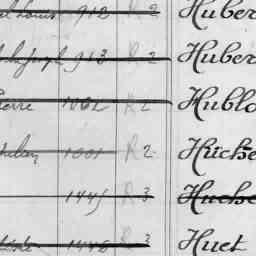 912 R 2 Huber
Joseph 913 R 2 Huber
Pierre 1002 R 2 Hublo
1001 R 2 Huche
1445 R 3 Huche
1446 R 3 Huet